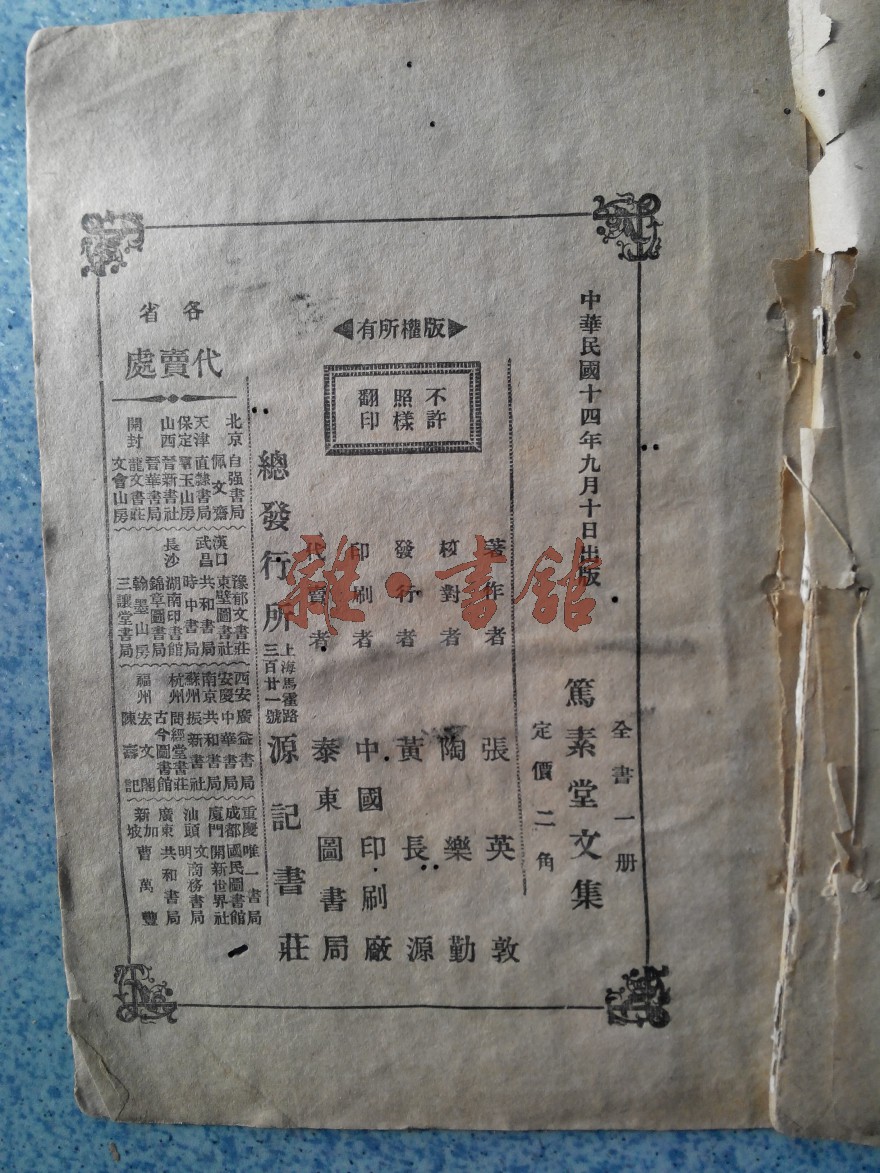 中華民國十四年九月十日出版
篤素堂文集
全書一册
定價二角
版權所有
不許
照樣
翻印
著作者 張英敦
校對者 陶樂勤
發行者 黃長源
印刷者 中國印刷廠
代賣者 泰東圖書局
總發行所 上海馬霍路三百廿一號 源記書莊
各省
代賣處
北京 自强書局
佩文齋
天津 直隸書局
保定 羣玉山房
山西 晉新書社
晉華書局
開封 龍文書莊
文會山房
漢口 豫郁文書莊
東壁圖書社
武昌 共和書局
時中書局
長沙 湖南印書館
錦章圖書局
翰墨山房
三讓堂書局
西安 廣益書局
安慶 中華書局
南京 共和書局
蘇州 振新書社
杭州 問經堂書莊
古今圖書館
福州 宏文閣
陳壽記
重慶 唯一書局
成都 國民圖書館
廈門 開新世界社
汕頭 文明商務書局
廣東 共和書局
新加坡 曹萬豐
雜·書舘